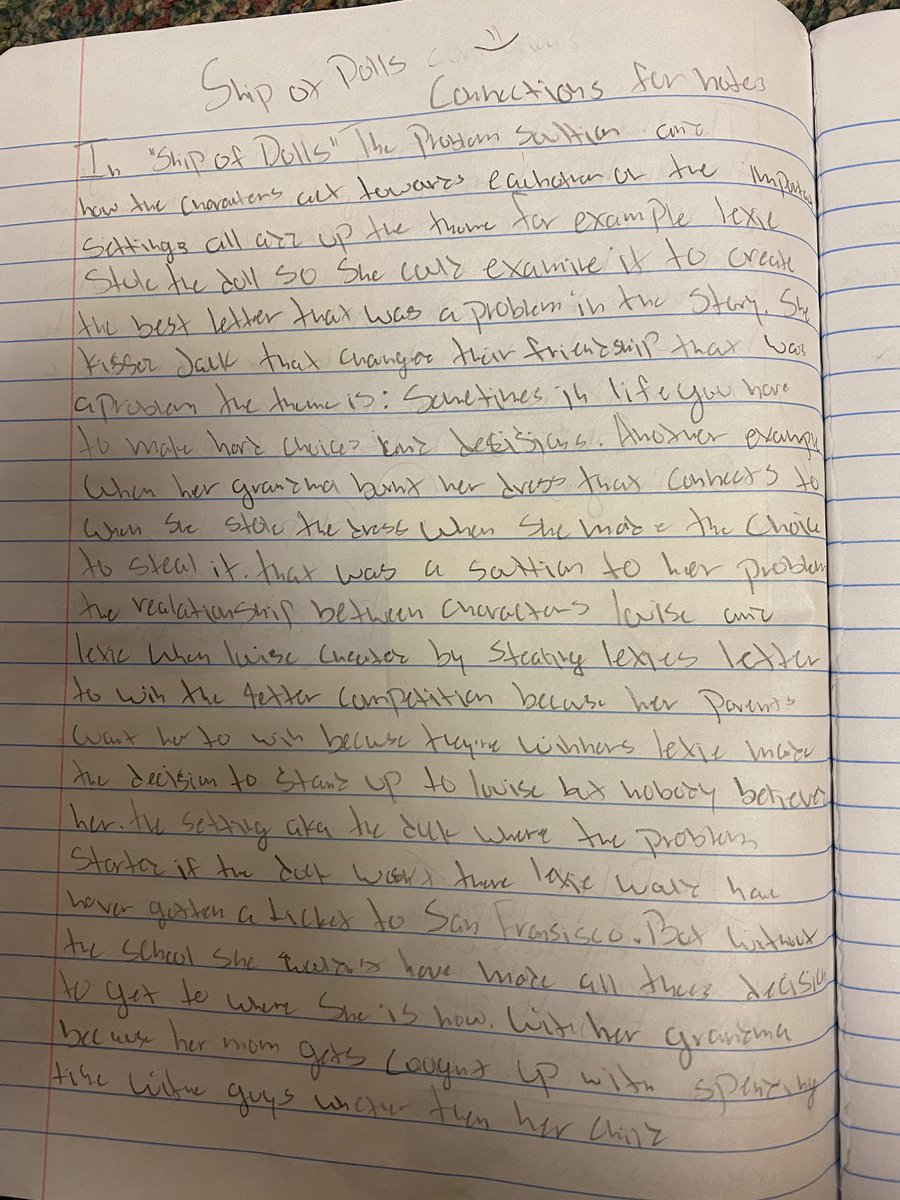 Ship of Dolls
Connections for notes
In "Ship of Dolls" The Problem soultion and
how the characters act towards eachother or the importa
settings all add up the theme for example lexie
Stole the doll so she could examine it to create
the best letter that was a problem in the story. She
kissed Jack that changed their friendship that was
a problem the theme is: Sometimes in life you have
to make hard choices and desisions. Another example
When her grandma burnt her dress that connects to
when she stole the dress when she made the choice
to steal it. that was a soultion to her problem
the realationship between characters louise and
lexie when louise cheated by stealing lexies letter
to win the letter competition becuse her parents
want her to win becuse theyre winners lexie made
the decision to stand up to louise but nobody believed
her. the setting aka the dock where the problem
started if the dock wasnt there lexie would have
never gotten a ticket to San Fransisco. But without
the school she wouldn't have made all these decisio
to get to where she is now. With her grandma
because her mom gets caught up with spending
time with guys then her child